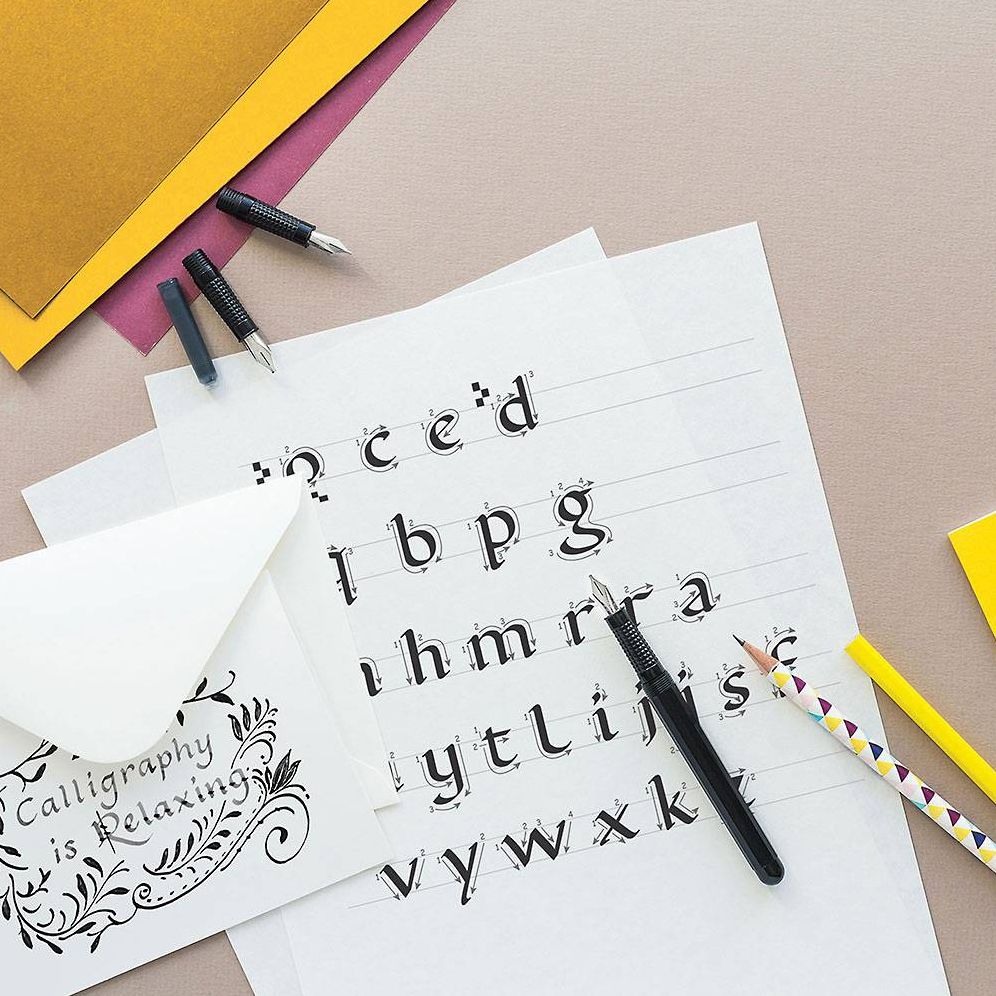 o c e d
b p g
h m r r a
y t l i j s c
v y w x k z
Calligraphy
is Relaxing.